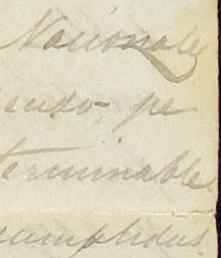 Nacionales
endo, pe
terminable
cumplidas